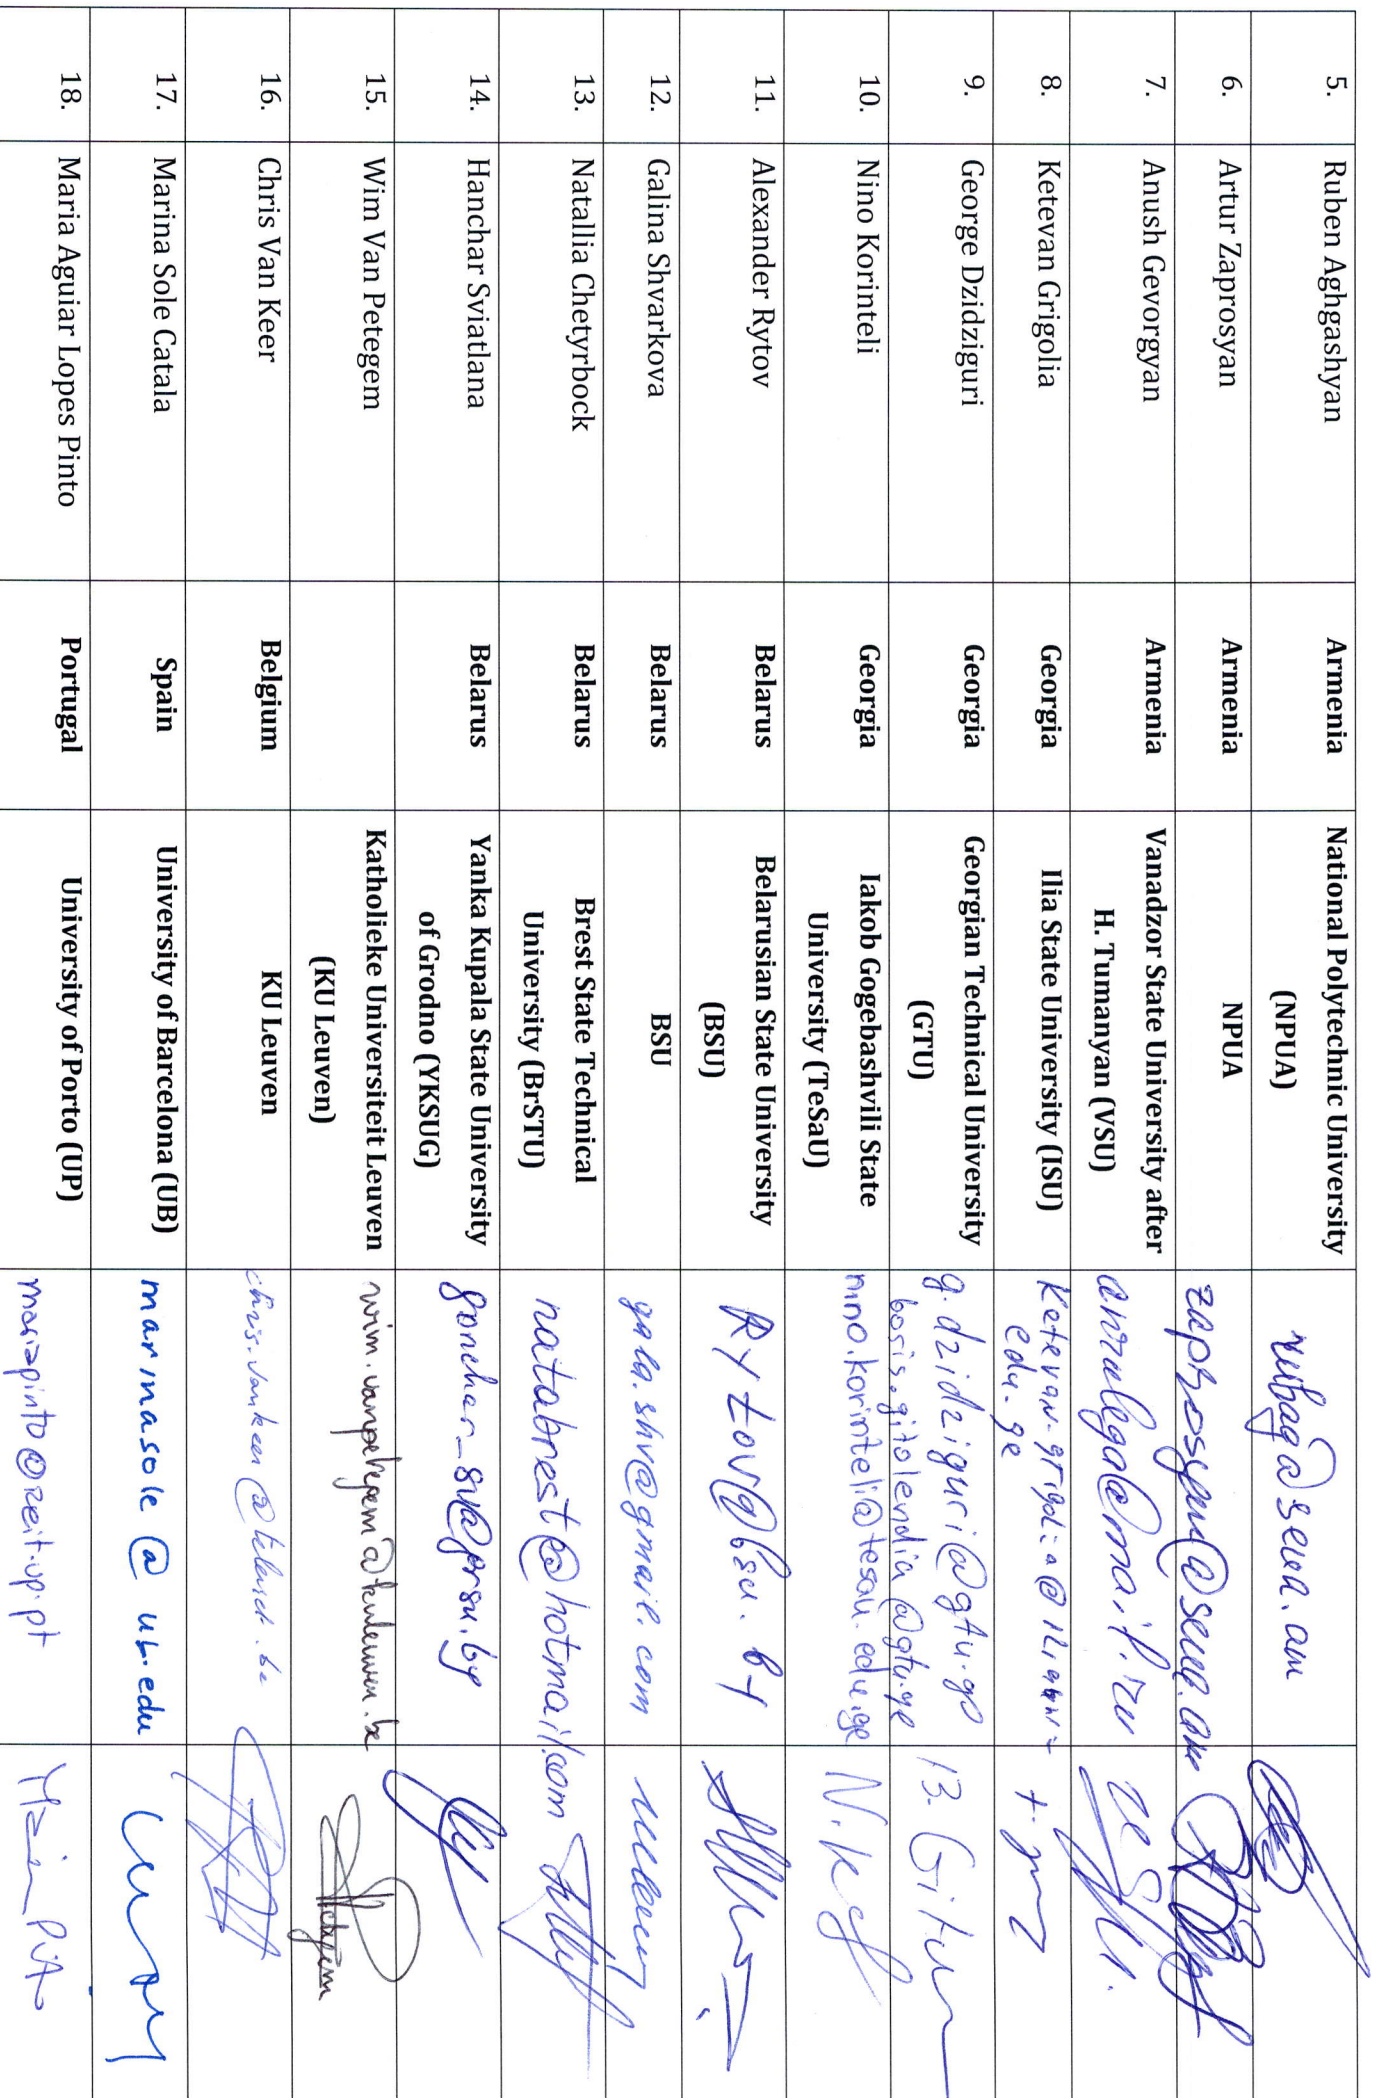 5. Ruben Aghgashyan Armenia National Polytechnic University
(NPUA)
rubag@seua.am
6. Artur Zaprosyan Armenia NPUA zaprosyan@seua.am
7. Anush Gevorgyan Armenia Vanadzor State University after
H. Tumanyan (VSU)
8. Ketevan Grigolia Georgia Ilia State University (ISU) Ketevan.grigolia@iliauni.
edu.ge
9. George Dzidziguri Georgia Georgian Technical University
(GTU)
g.dzidziguri@gtu.ge
boris.gitolendia@gtu.ge
B. Gitu
10. Nino Korinteli Georgia Iakob Gogebashvili State
University (TeSaU)
nino.korinteli@tesau.edu.ge
11. Alexander Rytov Belarus Belarusian State University
(BSU)
Rytov@bsu.by
12. Galina Shvarkova Belarus BSU gala.shv@gmail.com
13. Natallia Chetyrbock Belarus Brest State Technical
University (BrSTU)
natabrest@hotmail.com
14. Hanchar Sviatlana Belarus Yanka Kupala State University
of Grodno (YKSUG)
goncher_sv@grsu.by
15. Wim Van Petegem Katholieke Universiteit Leuven
(KU Leuven)
wim.vanpetegem@kuleuven.be
16. Chris Van Keer Belgium KU Leuven
17. Marina Sole Catala Spain University of Barcelona (UB) marinasole@ub.edu
18. Maria Aguiar Lopes Pinto Portugal University of Porto (UP) mariapinto@reit.up.pt